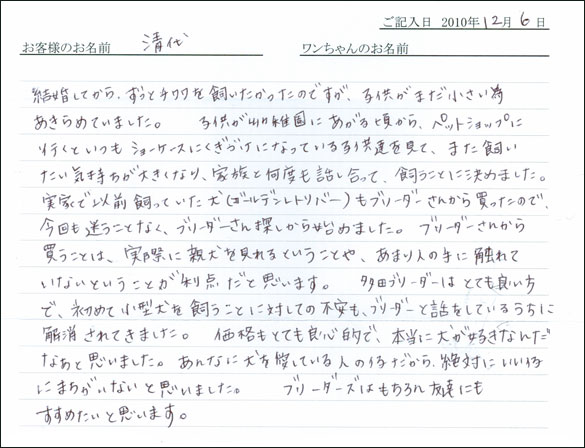 ご記入日 2010年12月6日
お客様のお名前 清代 ワンちゃんのお名前
結婚してから、ずっとチワワを飼いたかったのですが、子供がまだ小さい為
あきらめていました。 子供が幼稚園にあがる頃から、ペットショップに
行くといつもショーケースにくぎづけになっている子供達を見て、また飼い
たい気持ちが大きくなり、家族と何度も話し合って、飼うことに決めました。
実家で以前飼っていた犬(ゴールデンレトリバー)もブリーダーさんから買ったので、
今回も迷うことなく、ブリーダーさん探しから始めました。 ブリーダーさんから
買うことは、実際に親犬を見れるということや、あまり人の手に触れて
いないということが利点だと思います。 多田ブリーダーはとても良い方
で、初めて小型犬を飼うことに対しての不安も、ブリーダーと話をしているうちに
解消されてきました。 価格もとても良心的で、本当に犬が好きなんだ
なあと思いました。あんなに犬を愛している人の仔だから、絶対にいい仔
にまちがいないと思いました。 ブリーダーズはもちろん友達にも
すすめたいと思います。